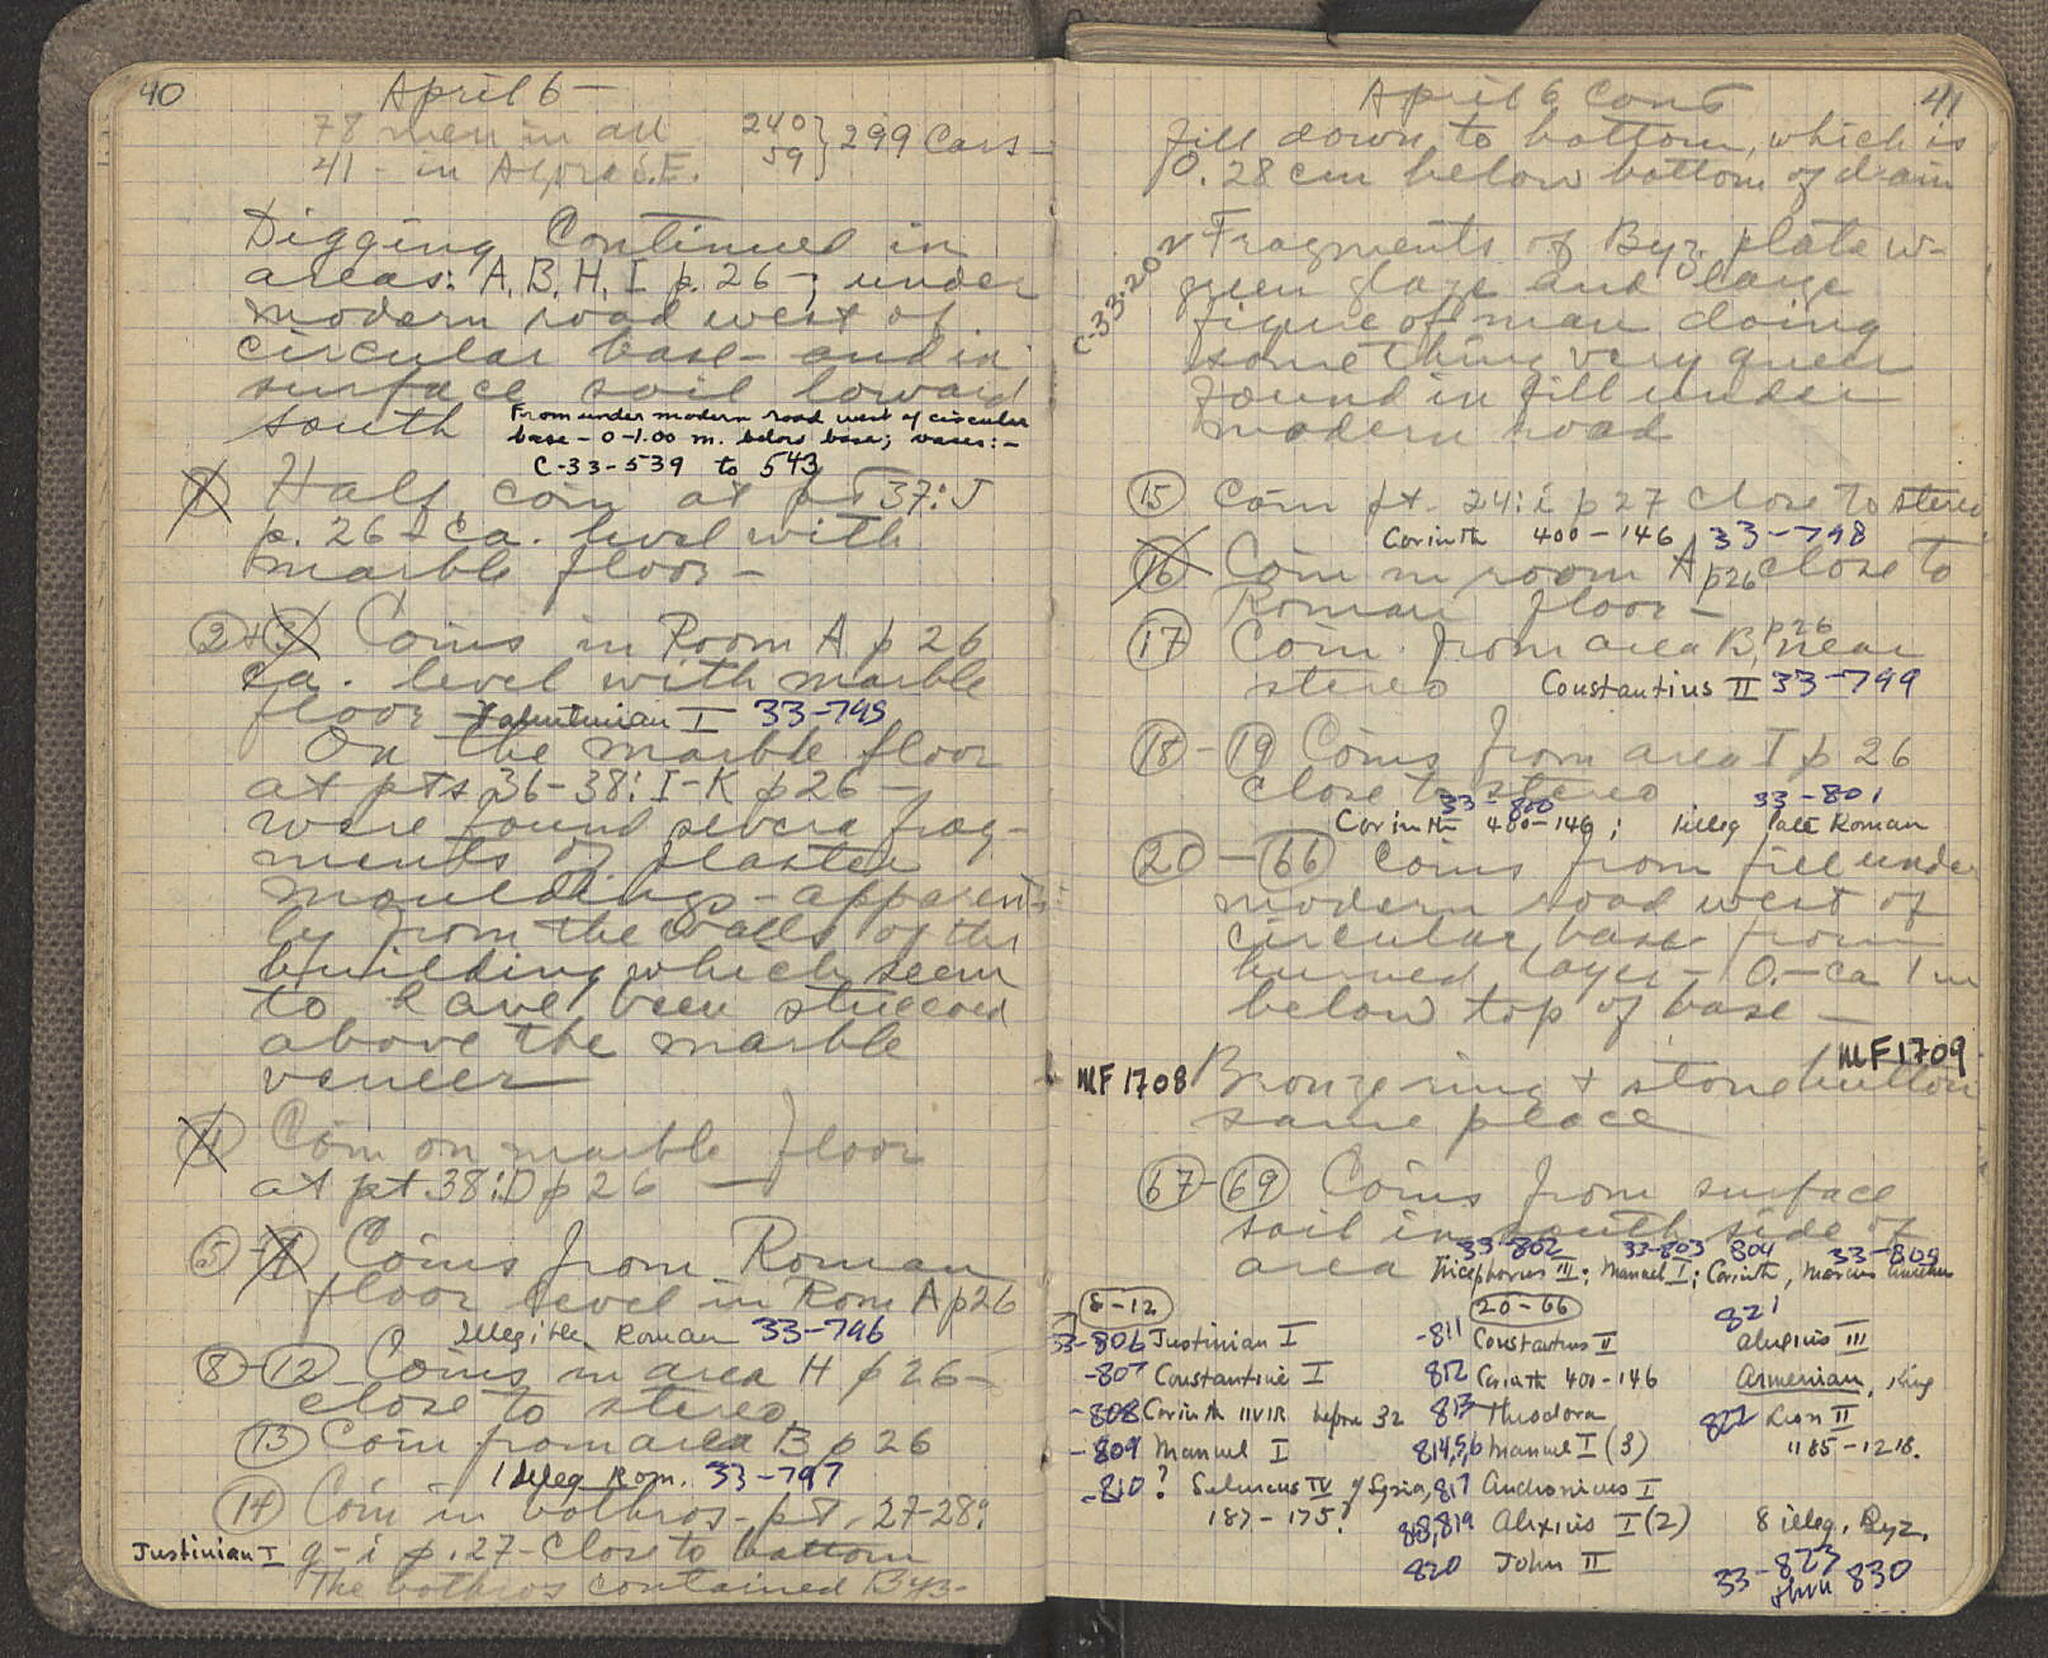 40
April 6 –
78 men in all
41 - in Agora S.E.
240
59 } 299 Cars –
Digging Continued in
areas: A, B, H, I p. 26 – ; under
modern road west of
circular base – and in
surface soil toward
south
From under modern road west of circular
base – 0 - 1.00 m. below base; vases: –
C-33-539 to 543
1 Half coin at pt 37:J
p. 26 – Ca. level with
marble floor –
2 + 3 Coins in Room A p 26
Ca. level with marble
floor Valentinian I 33-795
On the marble floor
at pts 36-38: I-K p 26 –
were found several frag-
ments of plaster
mouldings – apparent-
ly from the walls of the
building which seem
to have been stuccoed
above the marble
veneer
4 Coin on marble floor
at pt 38:D p 26 –
5 - 7 Coins from Roman
floor level in Rom A p 26
Illegible Roman 33-796
8 - 12 Coins in area H p 26 –
close to stereo
13 Coin from area B p 26
1 Illeg Rom. 33-797
14 Coin in bothros – pt. 27-28:
Justinian I g - i p. 27 – Close to bottom
The bothros contained Byz-
April 6 Cont 41
fill down to bottom, which is
0.28 cm below bottom of drain
C-33-20
Fragments of Byz. plate w-
green glaze and large
figure of man doing
something very queer
found in fill under
modern road
15 Coin pt. 24:i p 27 close to stereo
Corinth 400-146 33-798
16 Coin in room A p26 close to
Roman floor –
17 Coin from area B, p 26 near
stereo Constantius II 33-799
18 - 19 Coins from area I p 26
close to stereo
33-800 33-801
Corinth 400-146; illeg late Roman
20 - 66 Coins from fill under
modern road west of
circular base from
burned layer – 0. – ca 1 m
below top of base –
MF 1709
MF 1708 Bronze ring + stone button
same place
67 - 69 Coins from surface
soil in south side of
33-802 33-803 804 33-805
area Nicephorus III; Manuel I; Corinth, Marcus Aurelius
8-12
33-806 Justinian I
-807 Constantine I
-808 Corinth IIVIR before 32
-809 Manuel I
-810? Seleucus IV of Syria,
187-175?
20-66
-811 Constantius II
812 Corinth 400-146
813 Theodora
814,5,6 Manuel I (3)
817 Andronicus I
818,819 Alexius I (2)
820 John II
821
Alexius III
Armenian, King
822 Leon II
1185-1218.
8 illeg. Byz.
33-823
thru 830